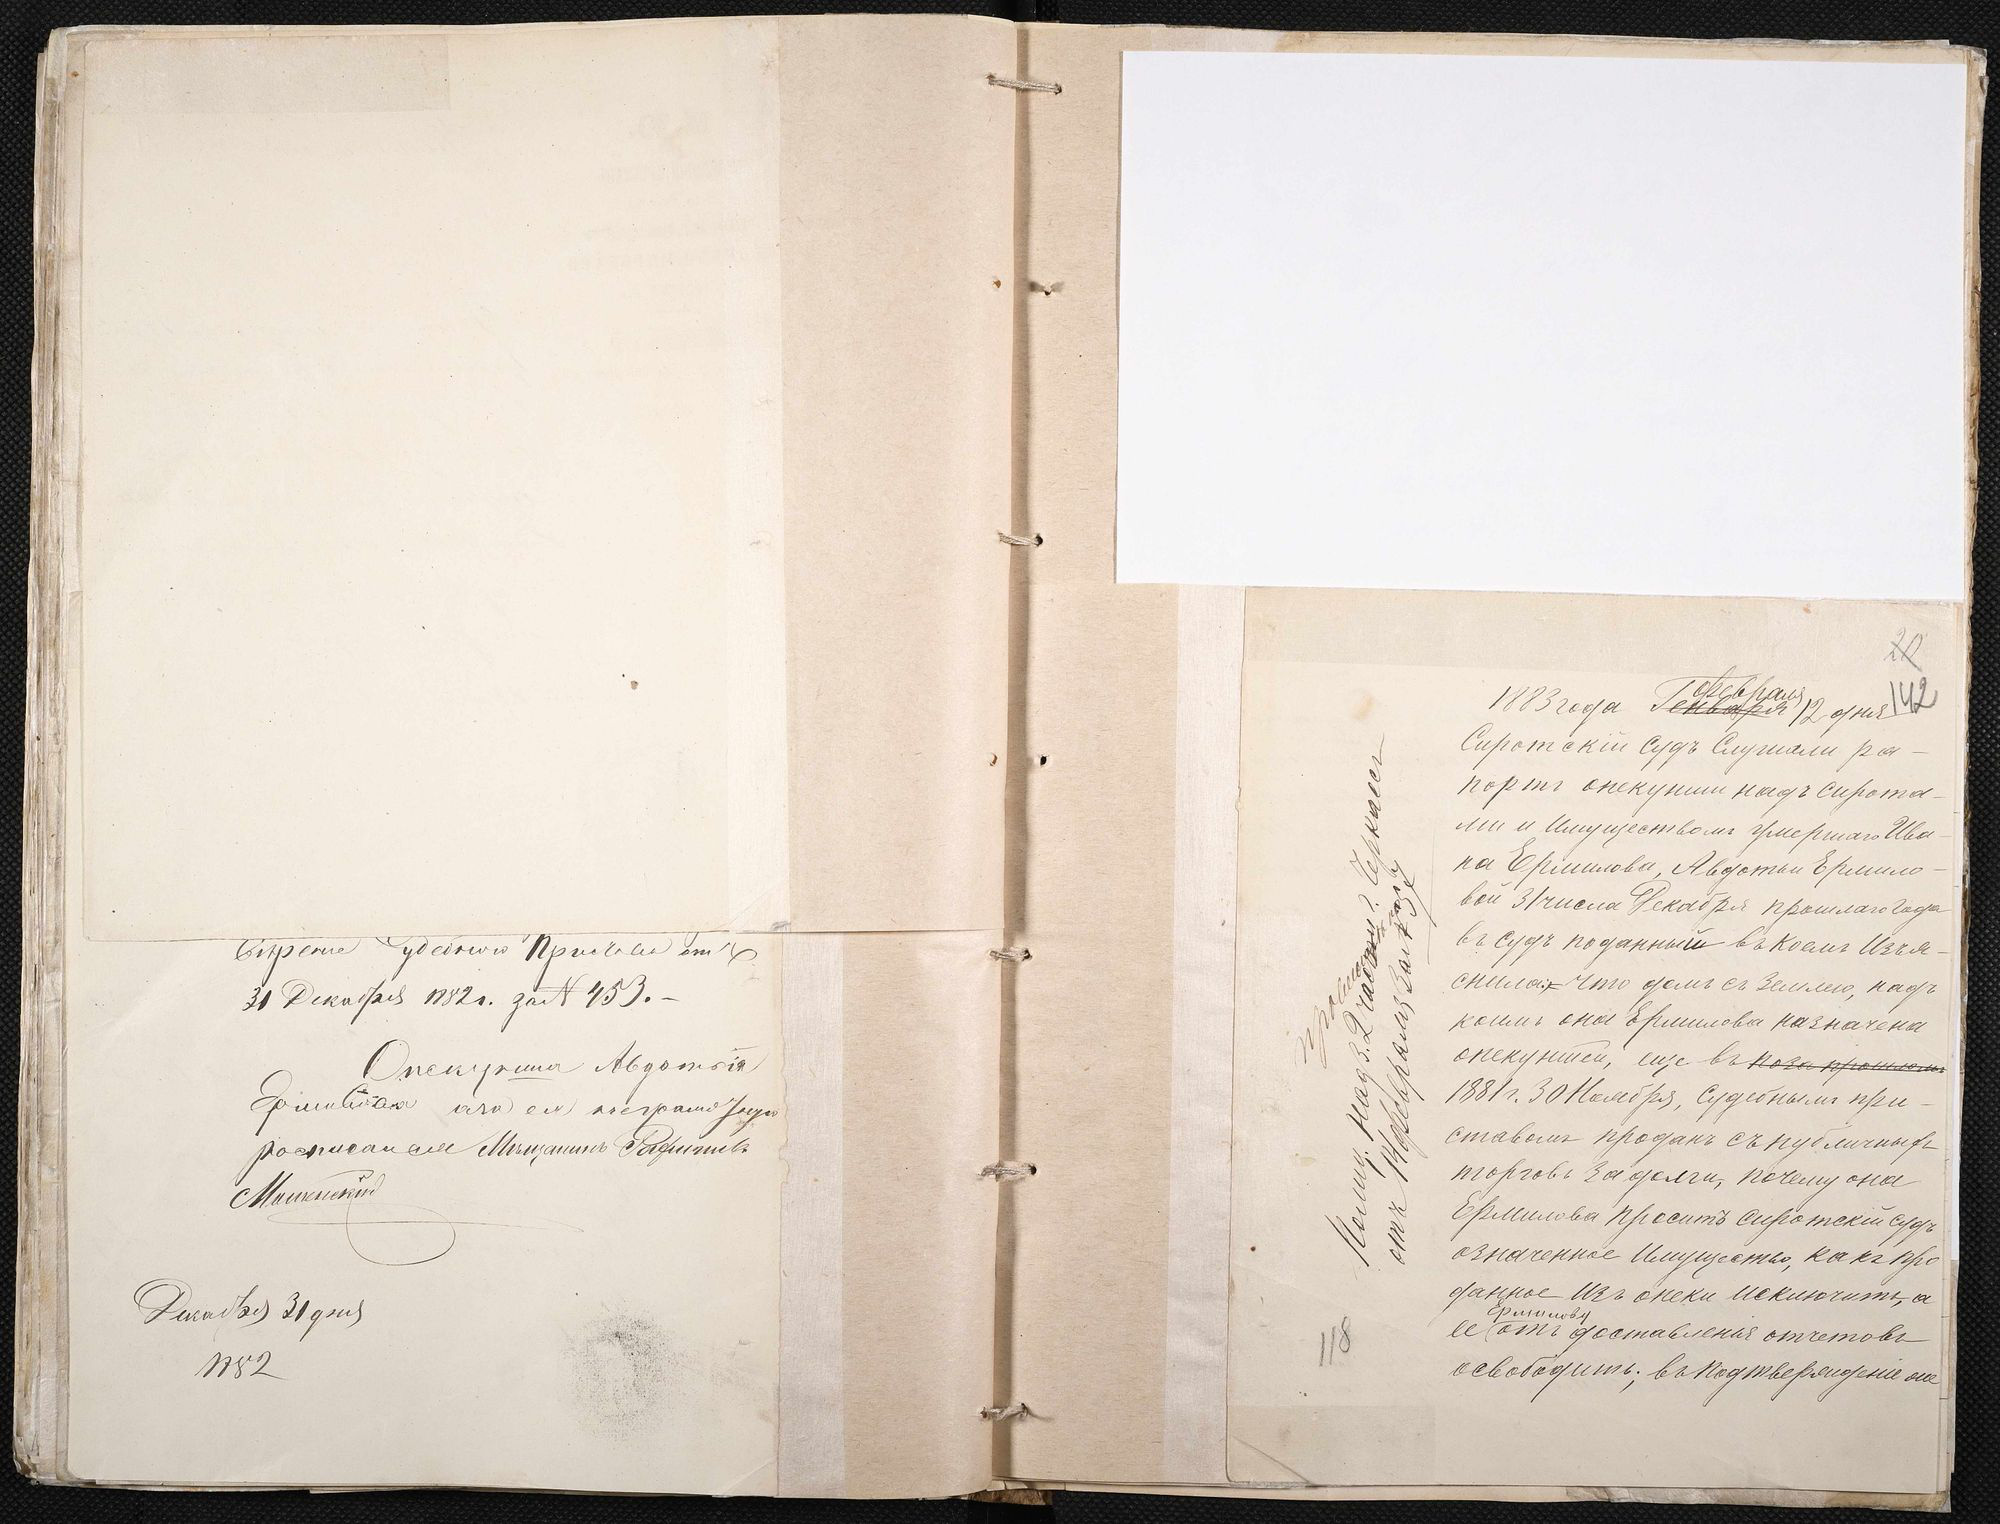 Судебного Пристава отъ
31 Декабря 1882 г. за № 453. –
Опекунша Авдотья
Ермилова а за ея неграмотную
росписался Мѣщанинъ
Декабря 31 дня
1882
20
142
1883 года Генваря Февраля 12 дня
Сиротскій Судъ Слушали ра–
портъ опекунши надъ сирота–
ми и Имуществомъ умершаго Ива–
на Ермилова, Авдотьи Ермило–
вой 31 числа Декабря прошлаго года
въ судъ поданный въ коемъ Изъя–
снила: что домъ съ Землею, надъ
коимъ она Ермилова назначена
опекуншей, еще въ
1881 г. 30 Ноября, Судебнымъ при–
ставомъ проданъ съ публичныхъ
торговъ за долги, почему она
Ермилова проситъ Сиротскій Судъ
означенное Имущество, какъ про
данное Изъ опеки исключить, а
ее Ермилову отъ доставленія отчетовъ
освободить; въ подтвержденіе
Черкасъ
отъ 14 Февраля за №
118